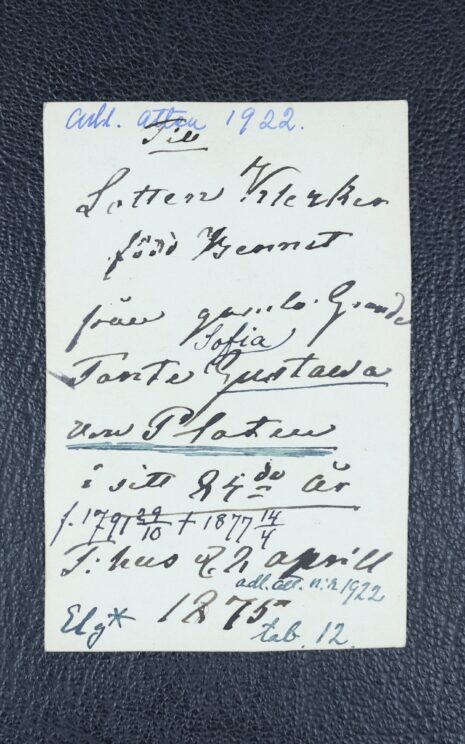 adl. ätten 1922.
Till
Lotten Klerker
född Bennet
från gamla Grand
Sofia
Tante Gustava
von Platen
i sitt 84de år
f. 1791 29/10 + 1877 14/4
aprill
adl. ätt. n:r 1922
1875
Elg* tab. 12.